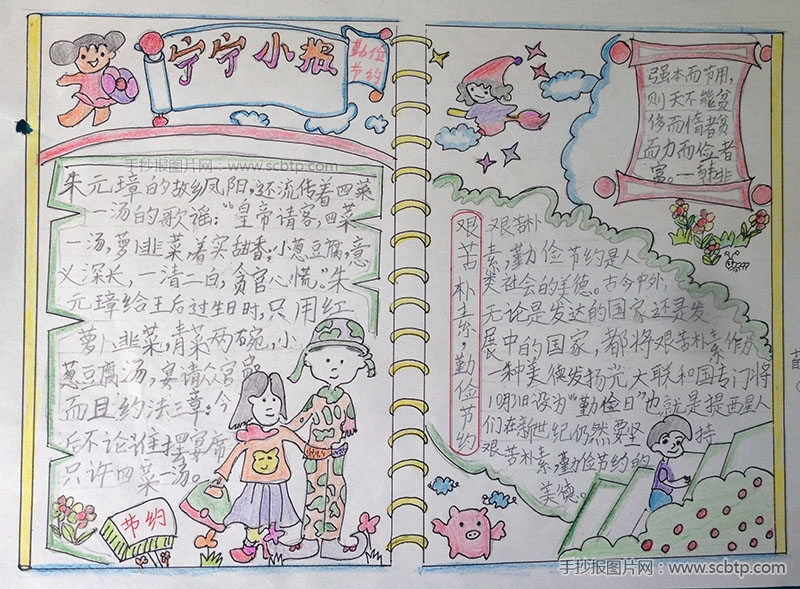 宁宁小报
勤俭
节约
手抄报图片网：www.scbtp.com
朱元璋的故乡凤阳，还流传着四菜
一汤的歌谣："皇帝请客，四菜
一汤，萝卜韭菜，着实甜香，小葱豆腐，意
义深长，一清二白，贪官心慌。"朱
元璋给王后过生日时，只用红
萝卜韭菜，青菜两碗，小
葱豆腐汤，宴请众官
而且约法三章：今
后不论谁摆宴席
只许四菜一汤。
节约
强本而节用，
则天不能贫
侈而惰者贫
而力而俭者
富。—韩非
艰苦朴素，勤俭节约
艰苦朴
素，勤俭节约是人
类社会的美德。古今中外，
无论是发达的国家还是发
展中的国家，都将艰苦朴素作为
一种美德发扬光大联和国专门将
10月31日设为"勤俭日"也就是提西星人
们在新世纪仍然要坚持
艰苦朴素，勤俭节约的
美德。
手抄报图片网：www.scbtp.com